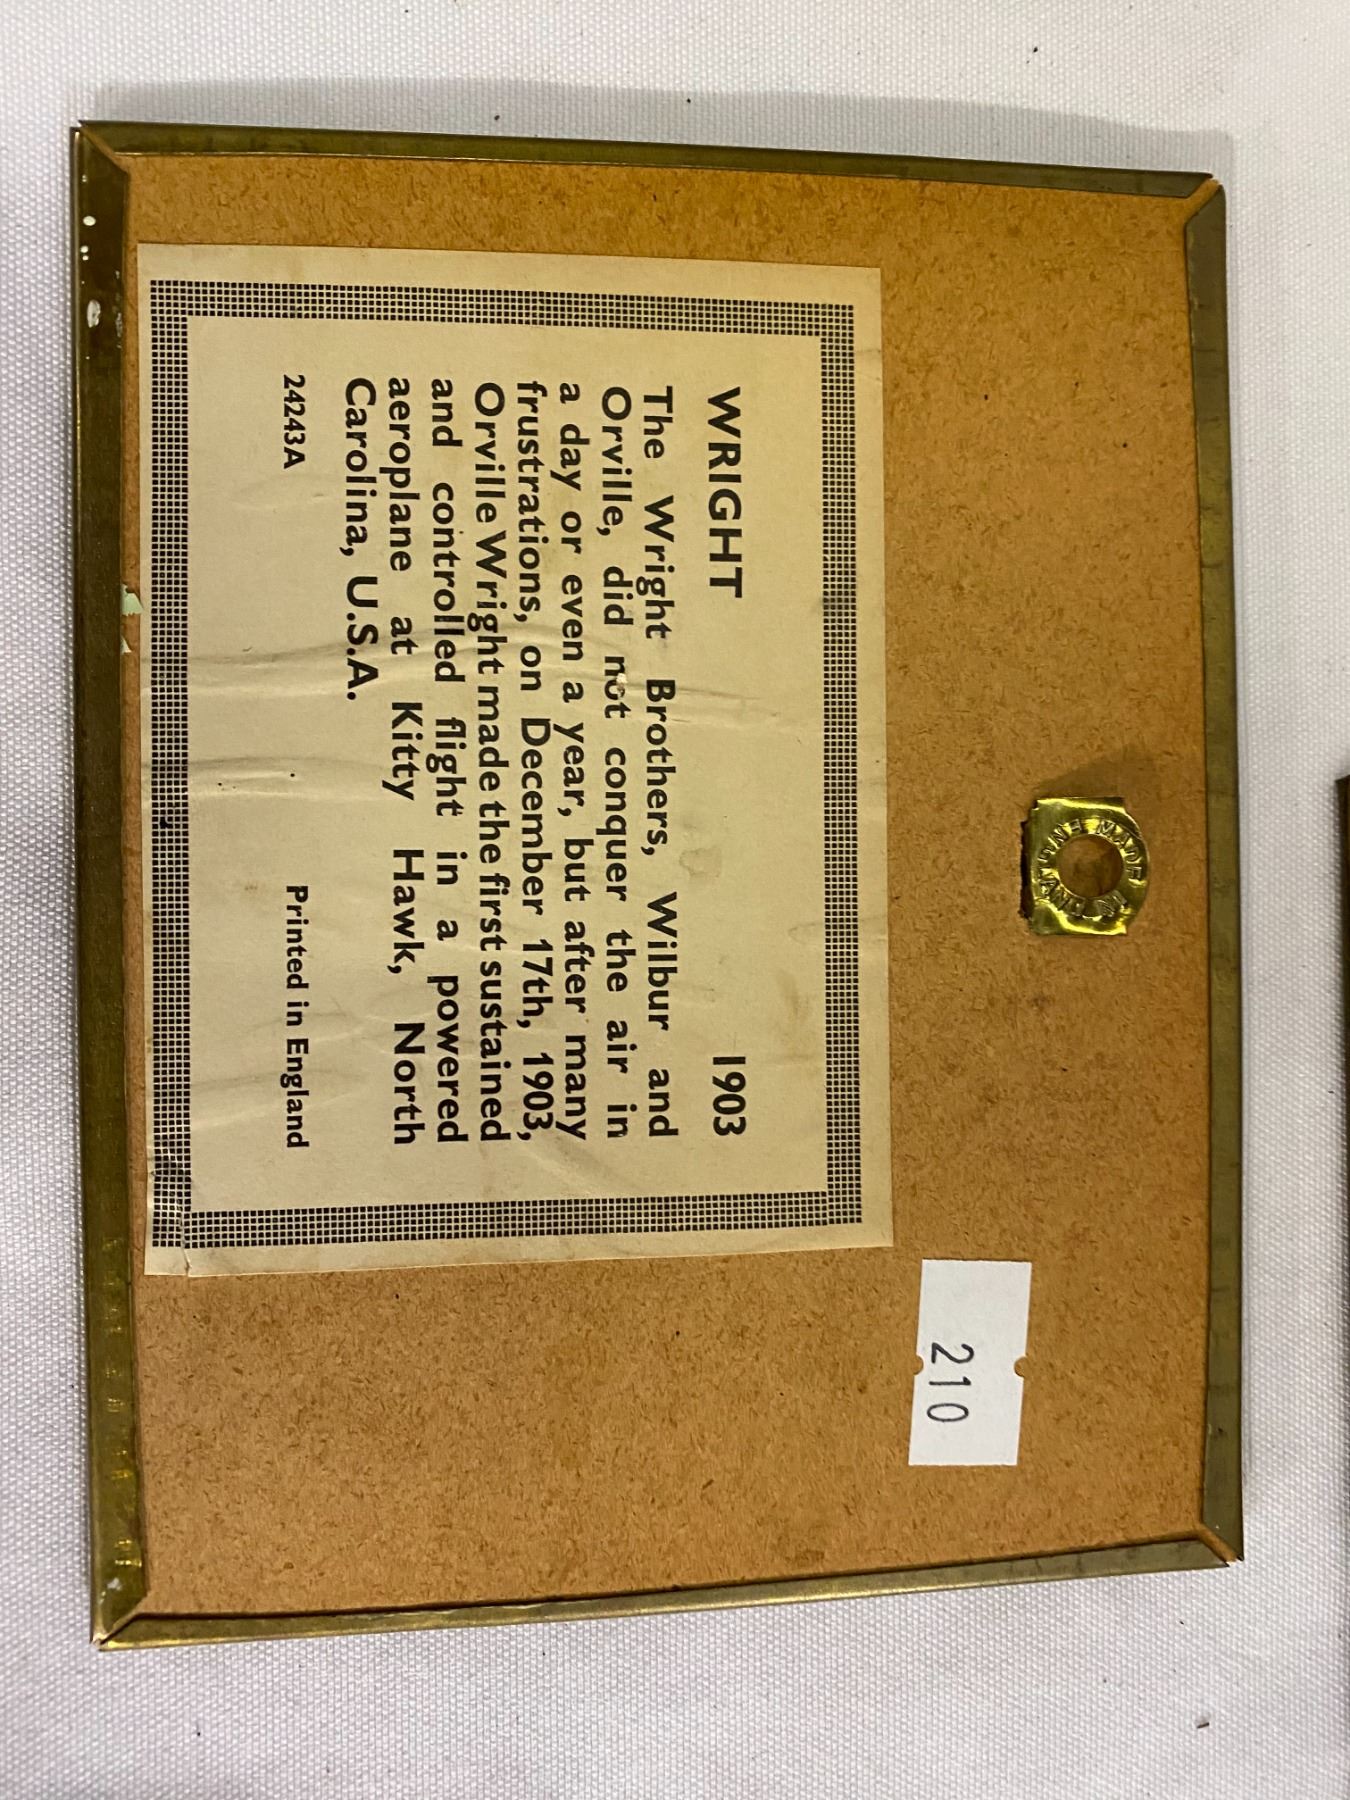 MADE IN ENGLAND
210
WRIGHT 1903
The Wright Brothers, Wilbur and
Orville, did not conquer the air in
a day or even a year, but after many
frustrations, on December 17th, 1903,
Orville Wright made the first sustained
and controlled flight in a powered
aeroplane at Kitty Hawk, North
Carolina, U.S.A.
24243A Printed in England